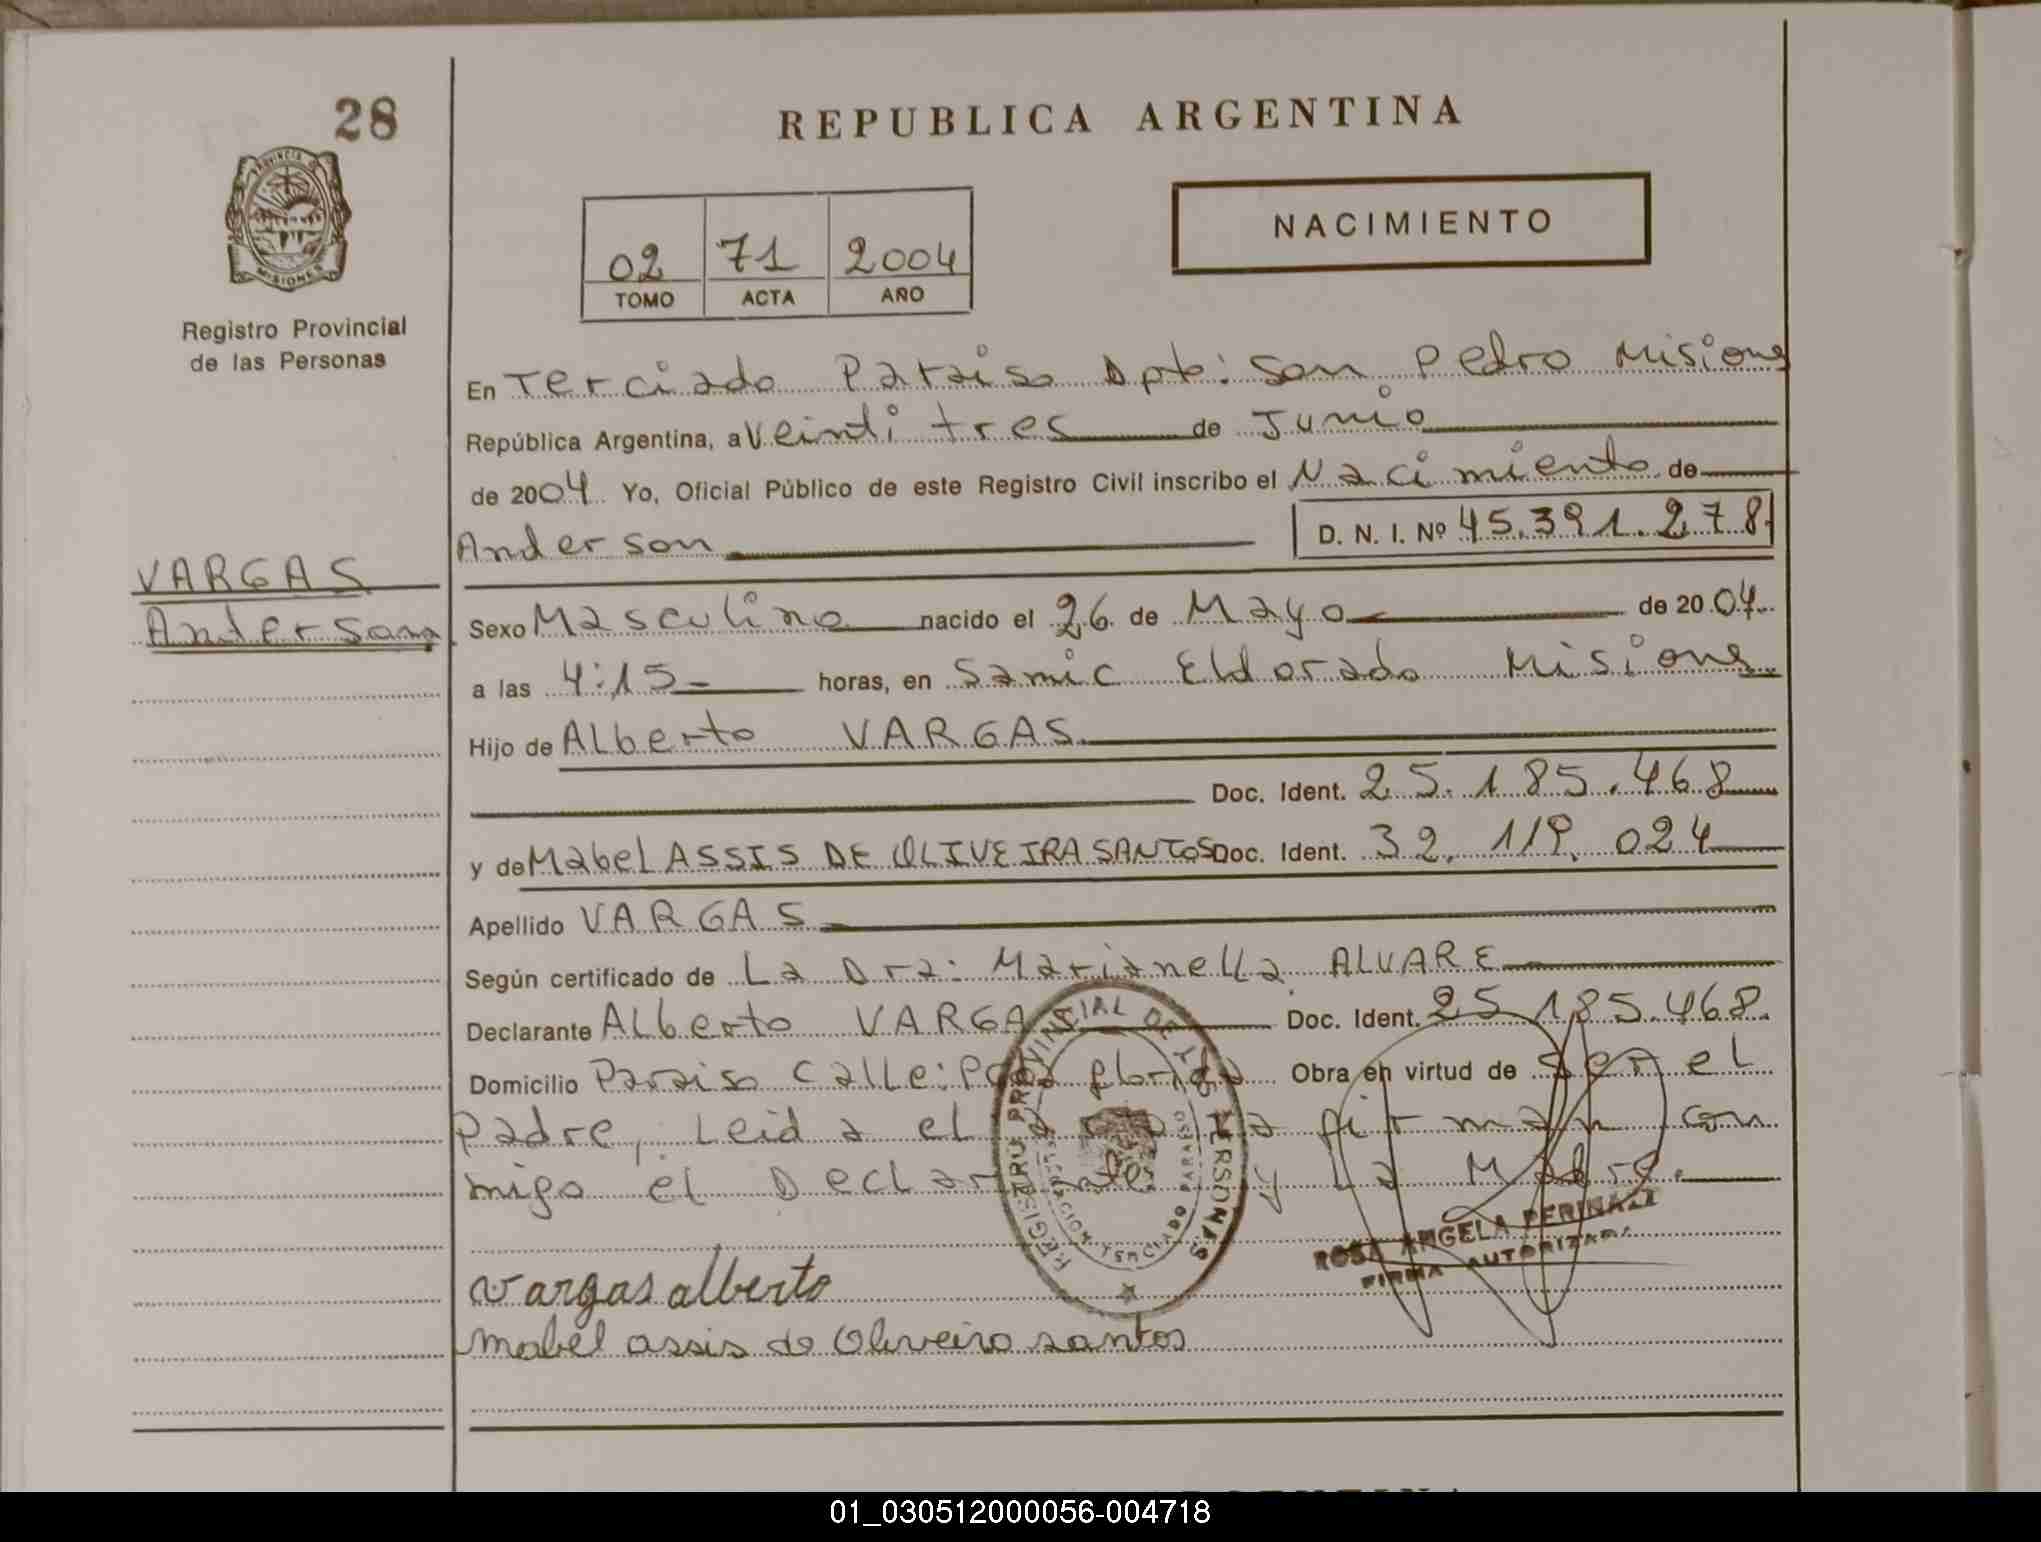 28
REPUBLICA ARGENTINA
PROVINCIA D
MISIONES
NACIMIENTO
02 71 2004
TOMO ACTA AÑO
Registro Provincial
de las Personas
En Terciado Paraiso Dpto: San Pedro Misiones
República Argentina, a Veinti tres de Junio
de 2004 Yo, Oficial Público de este Registro Civil inscribo el Nacimiento de
Anderson D. N. I. Nº 45.391.278
VARGAS
Anderson
Sexo Masculino nacido el 26 de Mayo de 2004
a las 4:15 horas, en Samic Eldorado Misiones
Hijo de Alberto VARGAS
Doc. Ident. 25.185.468
y de Mabel ASSIS DE OLIVEIRA SANTOS Doc. Ident. 32.119.024
Apellido VARGAS
Según certificado de La Dra: Marianella ALVARE
Declarante Alberto VARGAS Doc. Ident. 25.185.468
Domicilio Paraiso Calle: florida Obra en virtud de Ser el
Padre, Leida el firman con
migo el Declarante y La Madre.
REGISTRO PROVINCIAL DE LAS PERSONAS
DELEGACION TERCIADO PARAISO
ROSA ANGELA PERINAZZI
FIRMA AUTORIZADA
Vargas alberto
Mabel assis de Oliveira santos
01_030512000056-004718